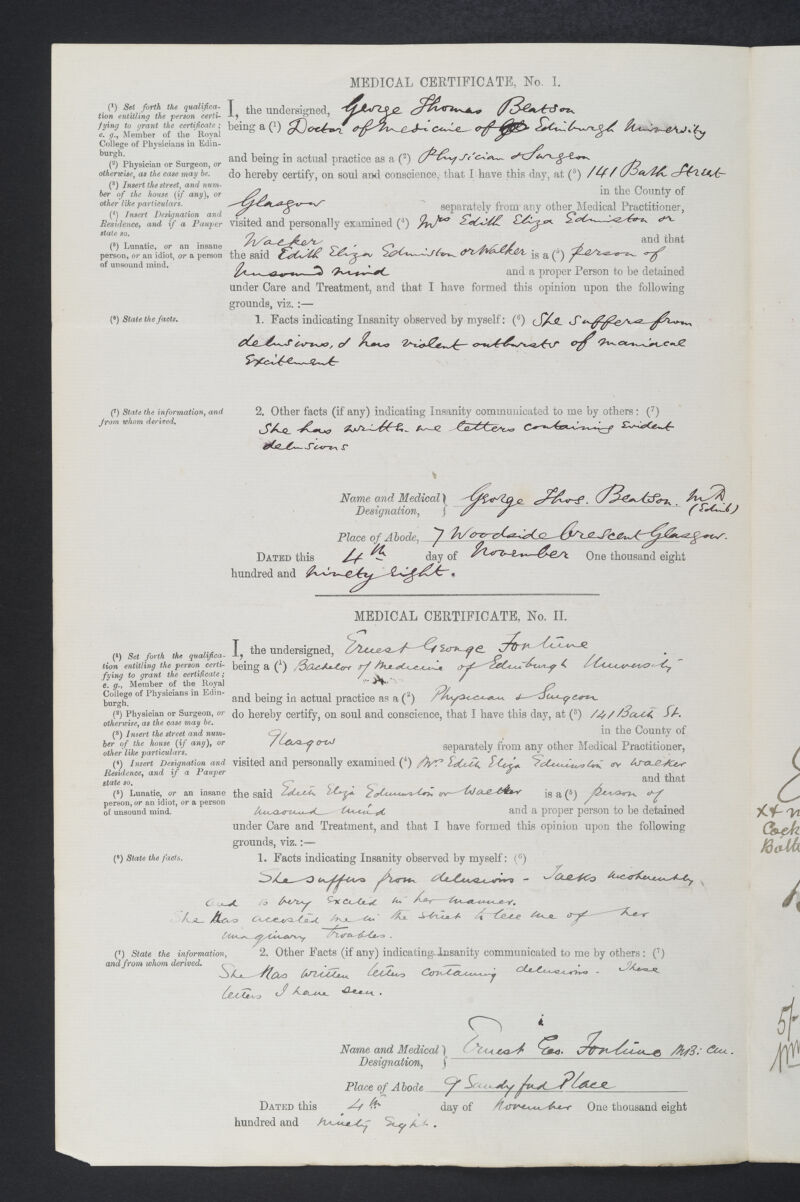 MEDICAL CERTIFICATE, No. I.
(¹) Set forth the qualifica-
tion entitling the person certi-
fying to grant the certificate;
e. g., Member of the Royal
College of Physicians in Edin-
burgh.
(²) Physician or Surgeon, or
otherwise, as the case may be.
(³) Insert the street, and num-
ber of the house (if any), or
other like particulars.
(⁴) Insert Designation and
Residence, and if a Pauper
state so.
(⁵) Lunatic, or an insane
person, or an idiot, or a person
of unsound mind.
I, the undersigned, George Thomas Beatson
being a (¹) Doctor of Medicine of Edinburgh University
and being in actual practice as a (²) Physician & Surgeon
do hereby certify, on soul and conscience, that I have this day, at (³) 141 Bath Street
in the County of
Glasgow separately from any other Medical Practitioner,
visited and personally examined (⁴) Mrs Edith Eliza Edmiston or
Walker and that
the said Edith Eliza Edmiston or Walker is a (⁵) person of
unsound mind and a proper Person to be detained
under Care and Treatment, and that I have formed this opinion upon the following
grounds, viz. :—
(⁶) State the facts.
1. Facts indicating Insanity observed by myself: (⁶) She suffers from
delusions, & has violent outbursts of maniacal
excitement
(⁷) State the information, and
from whom derived.
2. Other facts (if any) indicating Insanity communicated to me by others: (⁷)
She has written me letters containing evident
delusions
Name and Medical Designation, George Thos. Beatson. MD
(Edinb)
Place of Abode, 7 Woodside Crescent Glasgow.
DATED this 4th day of November One thousand eight
hundred and ninety eight.
MEDICAL CERTIFICATE, No. II.
(¹) Set forth the qualifica-
tion entitling the person certi-
fying to grant the certificate;
e. g., Member of the Royal
College of Physicians in Edin-
burgh.
(²) Physician or Surgeon, or
otherwise, as the case may be.
(³) Insert the street and num-
ber of the house (if any), or
other like particulars.
(⁴) Insert Designation and
Residence, and if a Pauper
state so.
(⁵) Lunatic, or an insane
person, or an idiot, or a person
of unsound mind.
I, the undersigned, Ernest George Fortune
being a (¹) Bachelor of Medicine of Edinburgh University
and being in actual practice as a (²) Physician & Surgeon
do hereby certify, on soul and conscience, that I have this day, at (³) 141 Bath St.
in the County of
Glasgow separately from any other Medical Practitioner,
visited and personally examined (⁴) Mrs Edith Eliza Edminston or Walker
and that
the said Edith Eliza Edmunston or Walker is a (⁵) person of
unsound mind and a proper person to be detained
under Care and Treatment, and that I have formed this opinion upon the following
grounds, viz. :—
(⁶) State the facts.
1. Facts indicating Insanity observed by myself: (⁶)
She suffers from delusions - Talks incoherently,
and is very excited in her manner.
She has accosted me in the street to tell me of her
imaginary troubles.
(⁷) State the information,
and from whom derived.
2. Other Facts (if any) indicating Insanity communicated to me by others: (⁷)
She has written letters containing delusions. These
letters I have seen.
Name and Medical Designation, Ernest Geo. Fortune M.B: C.M.
Place of Abode 9 Sandyford Place
DATED this 4th day of November One thousand eight
hundred and ninety eight.